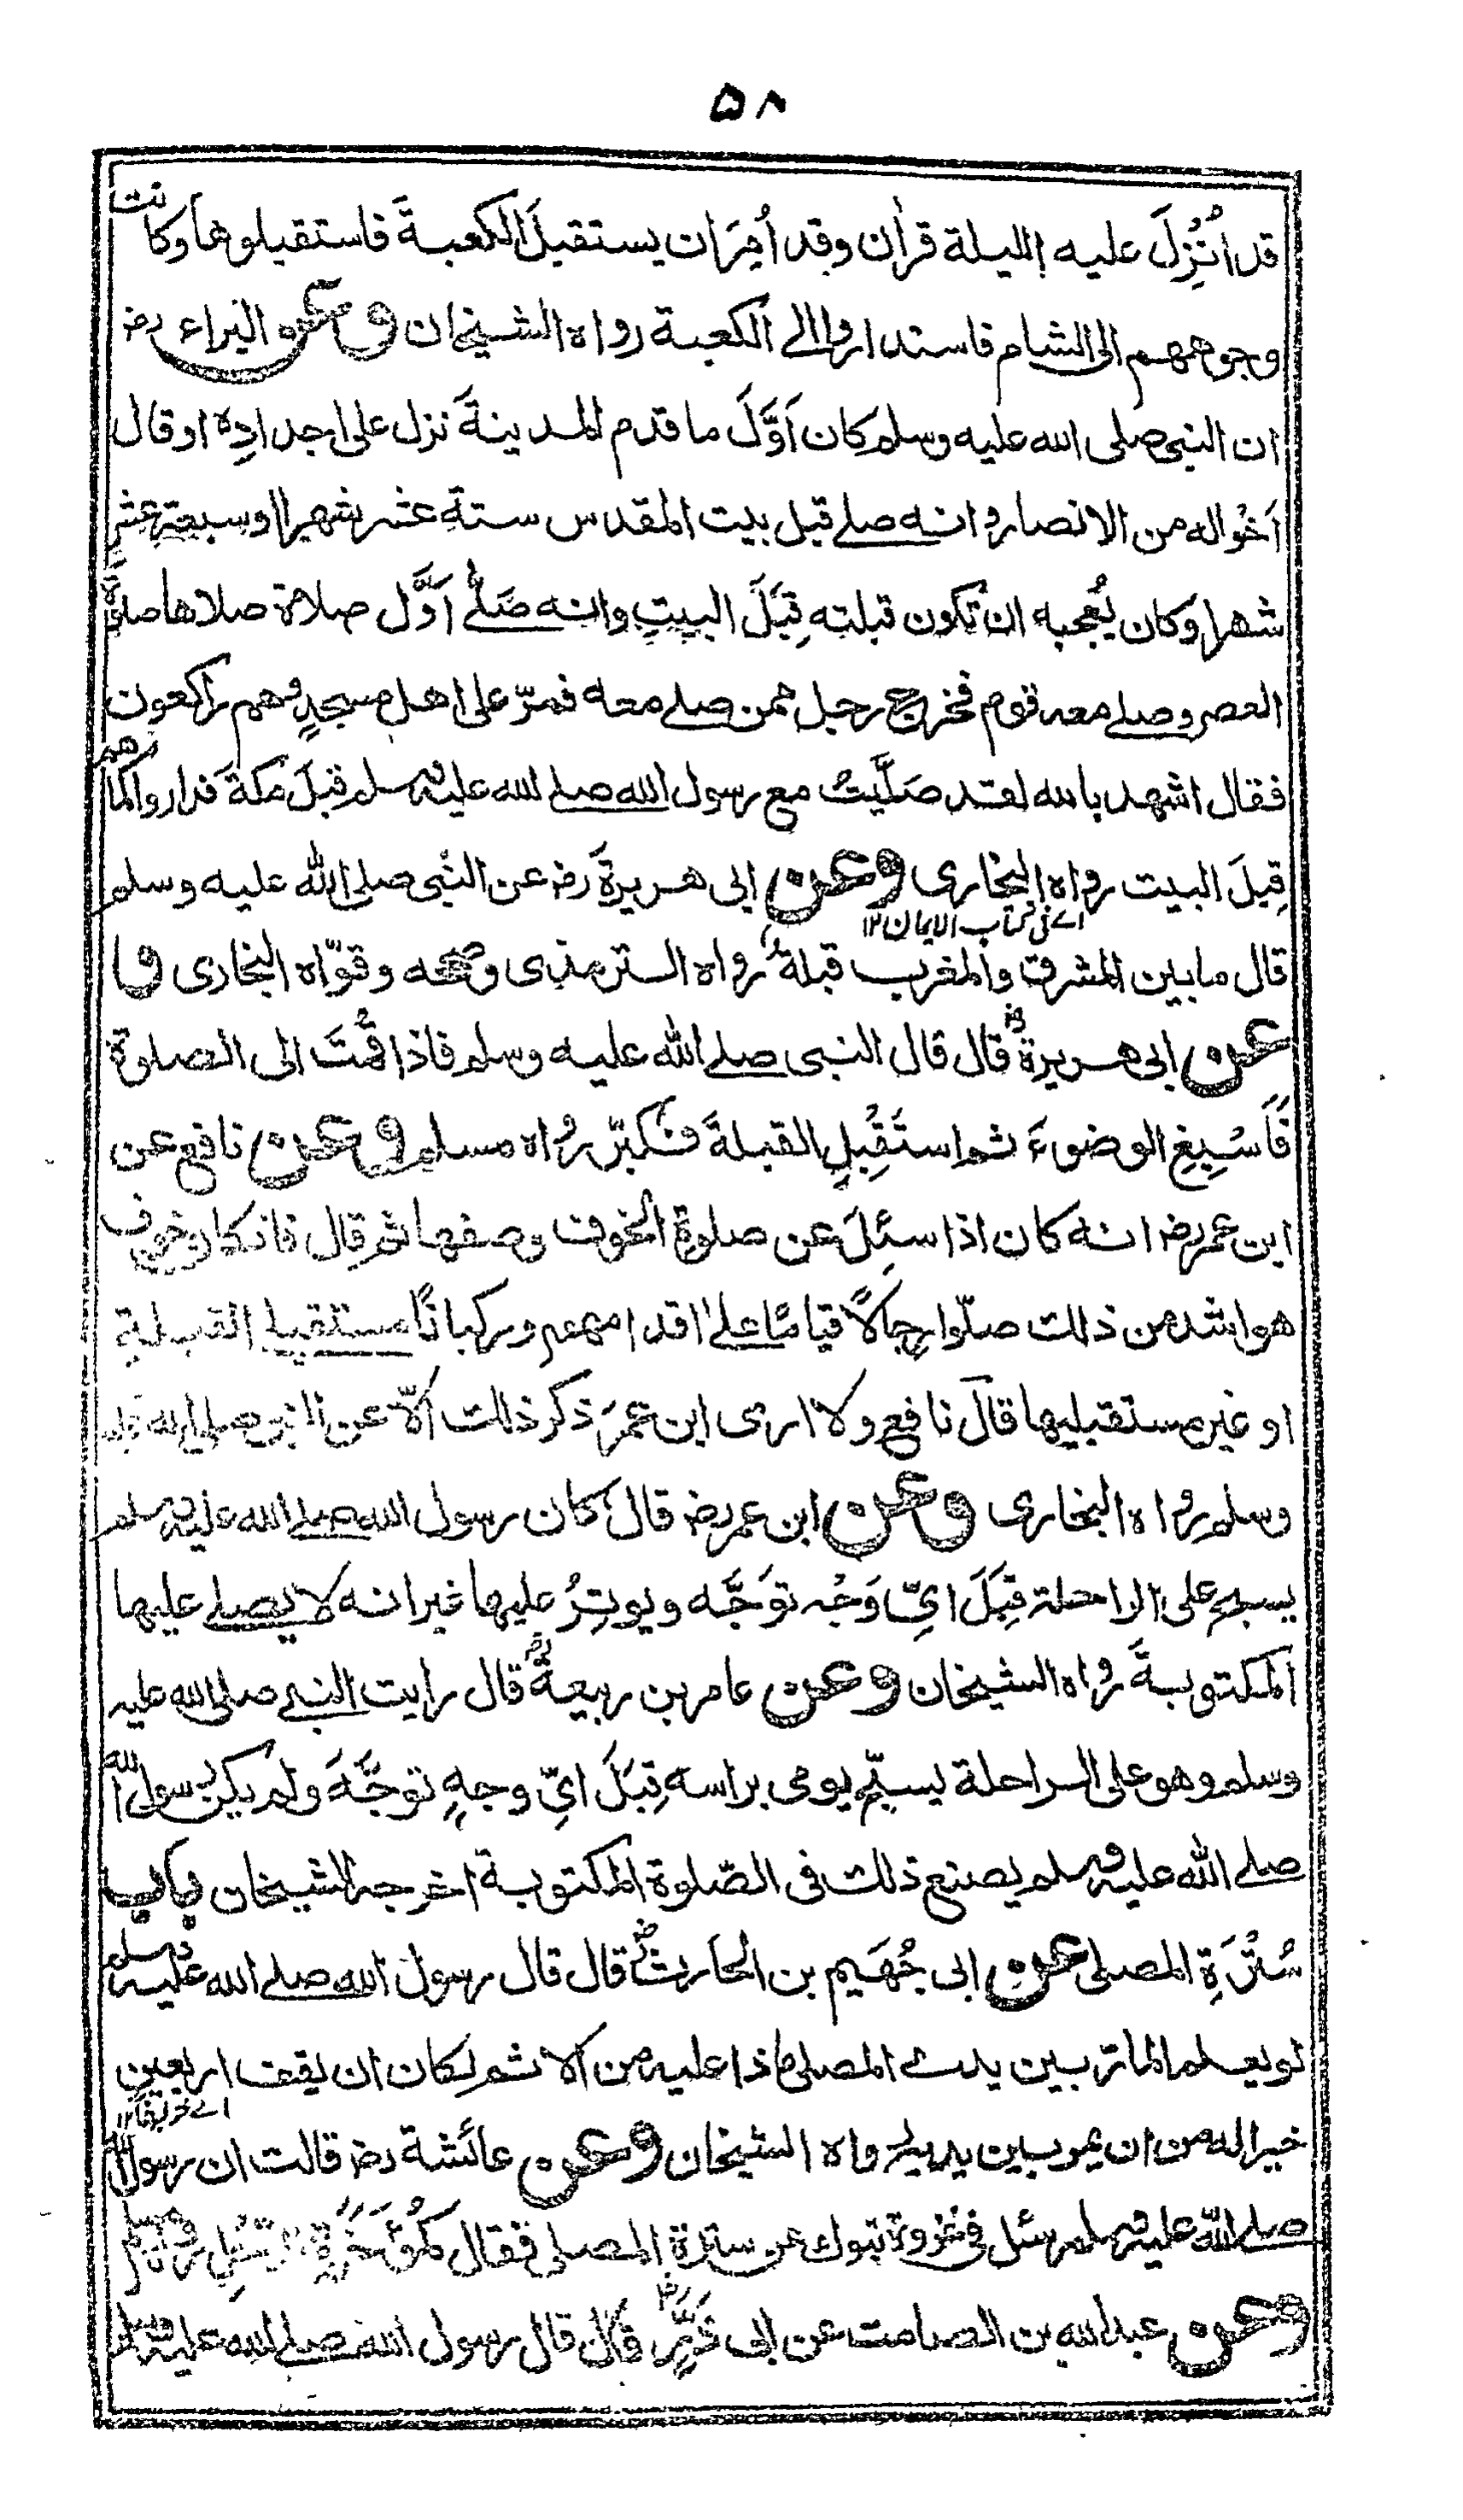 ٥٨
قد اُنزِلَ عليه الليلة قرأن وقد اُمِرَ ان يستقبلَ الكعبةَ فاستقبلوها وكانت
وجوههم الى الشام فاستداروا الى الكعبة رواه الشيخان وعن البراء رض
ان النبى صلى الله عليه وسلم كان اَوَّلَ ما قدم المدينةَ نزل على اجدادِه او قال
اَخْواله من الانصار وانه صلے قبل بيت المقدس ستةَ عشر شهرا او سبعة عشر
شهرا وكان يُعجبه ان تكون قبلته قِبَلَ البيتِ وانه صَلّٰے اَوَّل صلاة صلاها صلوةَ
العصر وصلے معه قوم فخرج رجل ممن صلے معه فمرّ على اهل مسجدٍ وهم راكعون
فقال اشهد بالله لقد صَلَّيتُ مع رسول الله صلے الله عليه وسلم قِبَلَ مكةَ فداروا كما هم
قِبلَ البيت رواه البخارى وعن ابى هريرةَ رض عن النبى صلى الله عليه وسلم
اے فى كتاب الايمان ١٢
قال ما بين المشرق والمغرب قبلةٌ رواه الترمذى وصححه وقوّاه البخارى و
عن ابى هريرةَ رض قال قال النبى صلے الله عليه وسلم فاذا قُمْتَ الى الصلوة
فَاَسْبِغِ الوضوءَ ثم استَقْبِلِ القبلةَ فكبّر رواه مسلم وعن نافع عن
ابن عمر رض انه كان اذا سئِلَ عن صلوةِ الخوف وصفها ثم قال فان كان خوف
هو اشد من ذلك صلّوا رجالًا قيامًا علىٰ اقدامهم وركبانًا مستقبلے القبلةِ
او غير مستقبليها قال نافع ولا ارى ابن عمرَ ذكر ذلك الّا عن النبى صلى الله عليه
وسلم رواه البخارى وعن ابن عمر رض قال كان رسول الله صلے الله عليه وسلم
يسبح على الراحلة قِبَلَ اىِّ وَجْه توَجَّه ويوتِرُ عليها غير انه لا يصلے عليها
المكتوبةَ رواه الشيخان وعن عامر بن ربيعةَ رض قال رايت النبى صلى الله عليه
وسلم وهو على الراحلة يسبّح يومى براسه قِبَلَ اىِّ وجهٍ توجَّهَ ولم يكن رسول الله
صلے الله عليه وسلم يصنع ذلك فى الصّلوة المكتوبة اخرجه الشيخان باب
سُتْرَةِ المصلى عن ابى جُهَيم بن الحارث رض قال قال رسول الله صلے الله عليه وسلم
لو يعلم المار بين يدے المصلى ماذا عليه من الاثم لكان ان يقف اربعين
اے خريفا ١٢
خيرا له من ان يمر بين يديه رواه الشيخان وعن عائشة رض قالت ان رسول الله
صلے الله عليه وسلم سئل فى غزوة تبوك عن سترة المصلى فقال كمُؤَخَّرةِ الرحل رواه مسلم
وعن عبد الله بن الصامت عن ابى ذرٍّ رض قال قال رسول الله صلے الله عليه وسلم